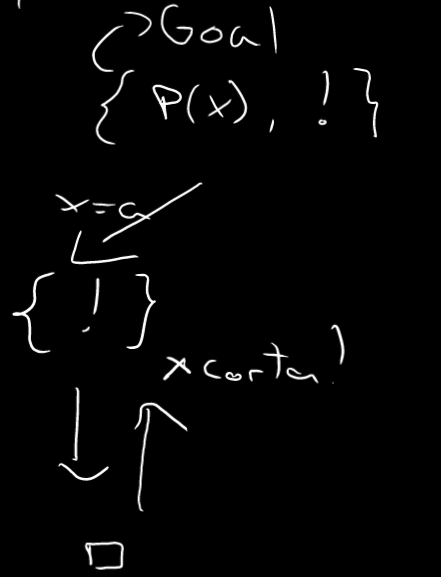 Goal
{ P(x), ! }
x=a
{ ! }
x corta!